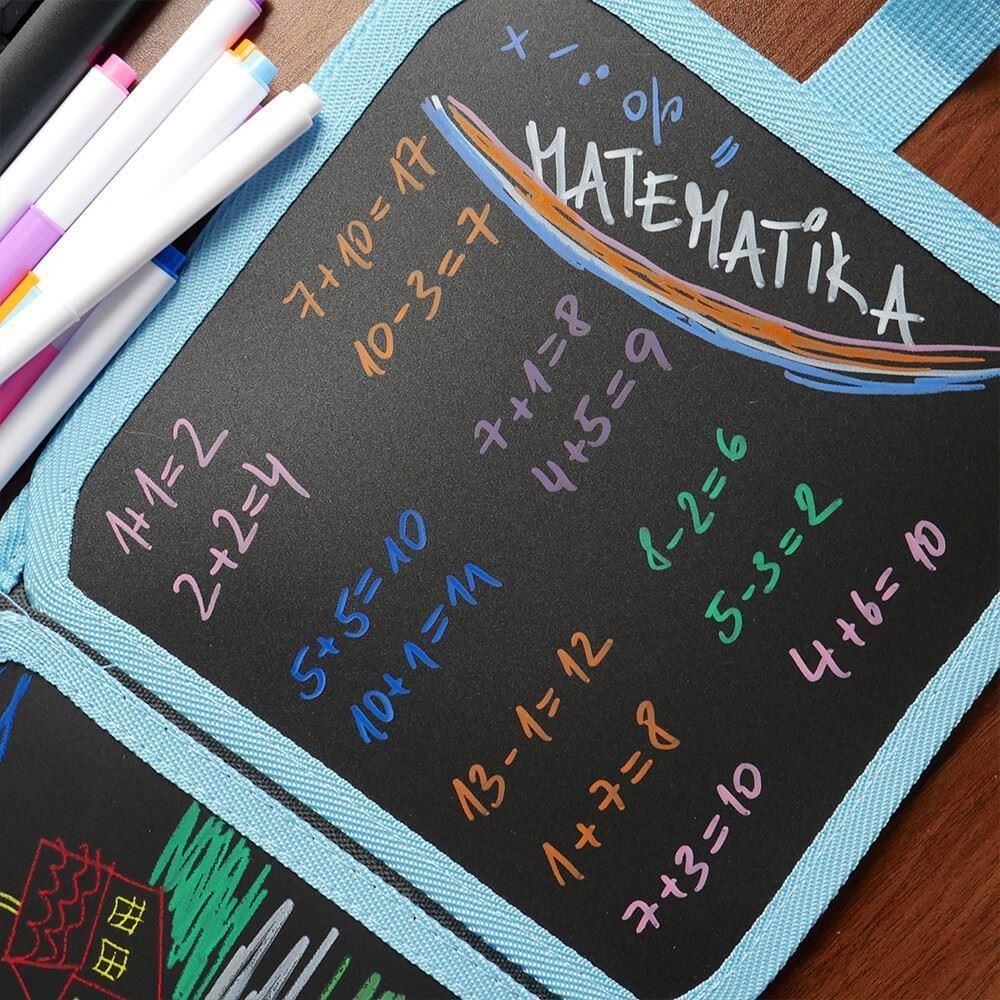 x - : % =
MATEMATiKA
7+10=17
10-3=7
7+1=8
4+5=9
1+1=2
2+2=4
5+5=10
10+1=11
8-2=6
5-3=2
4+6=10
13-1=12
1+7=8
7+3=10